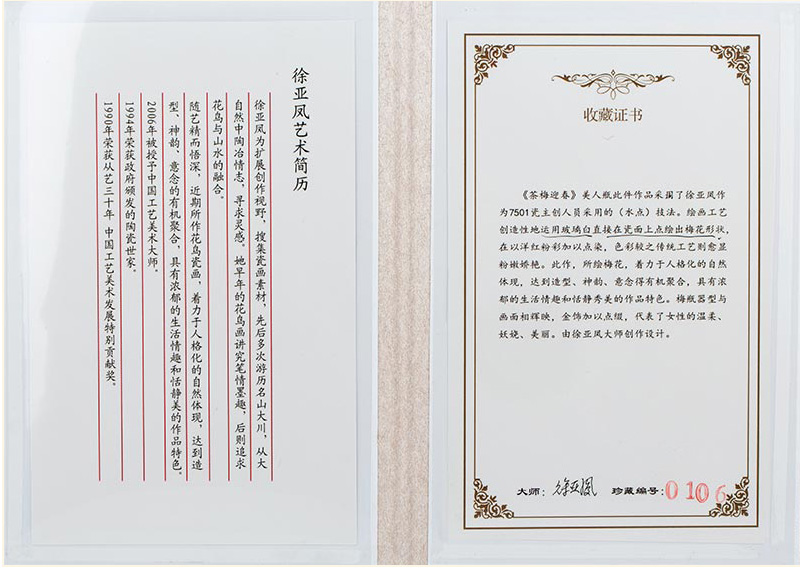 徐亚凤艺术简历
徐亚凤为扩展创作视野，搜集瓷画素材，先后多次游历名山大川，从大
自然中陶冶情志，寻求灵感。她早年的花鸟画讲究笔情墨趣，后则追求
花鸟与山水的融合。
随艺精而悟深，近期所作花鸟瓷画，着力于人格化的自然体现，达到造
型、神韵、意念的有机聚合，具有浓郁的生活情趣和恬静美的作品特色。
2006年被授予中国工艺美术大师。
1994年荣获政府颁发的陶瓷世家。
1990年荣获从艺三十年 中国工艺美术发展特别贡献奖。
收藏证书
《茶梅迎春》美人瓶此件作品采撷了徐亚凤作
为7501瓷主创人员采用的（水点）技法。绘画工艺
创造性地运用玻璃白直接在瓷面上点绘出梅花形状，
在以洋红粉彩加以点染，色彩较之传统工艺则愈显
粉嫩娇艳。此作，所绘梅花，着力于人格化的自然
体现，达到造型、神韵、意念得有机聚合，具有浓
郁的生活情趣和恬静秀美的作品特色。梅瓶器型与
画面相辉映，金饰加以点缀，代表了女性的温柔、
妖娆、美丽。由徐亚凤大师创作设计。
大师：徐亚凤 珍藏编号：0106